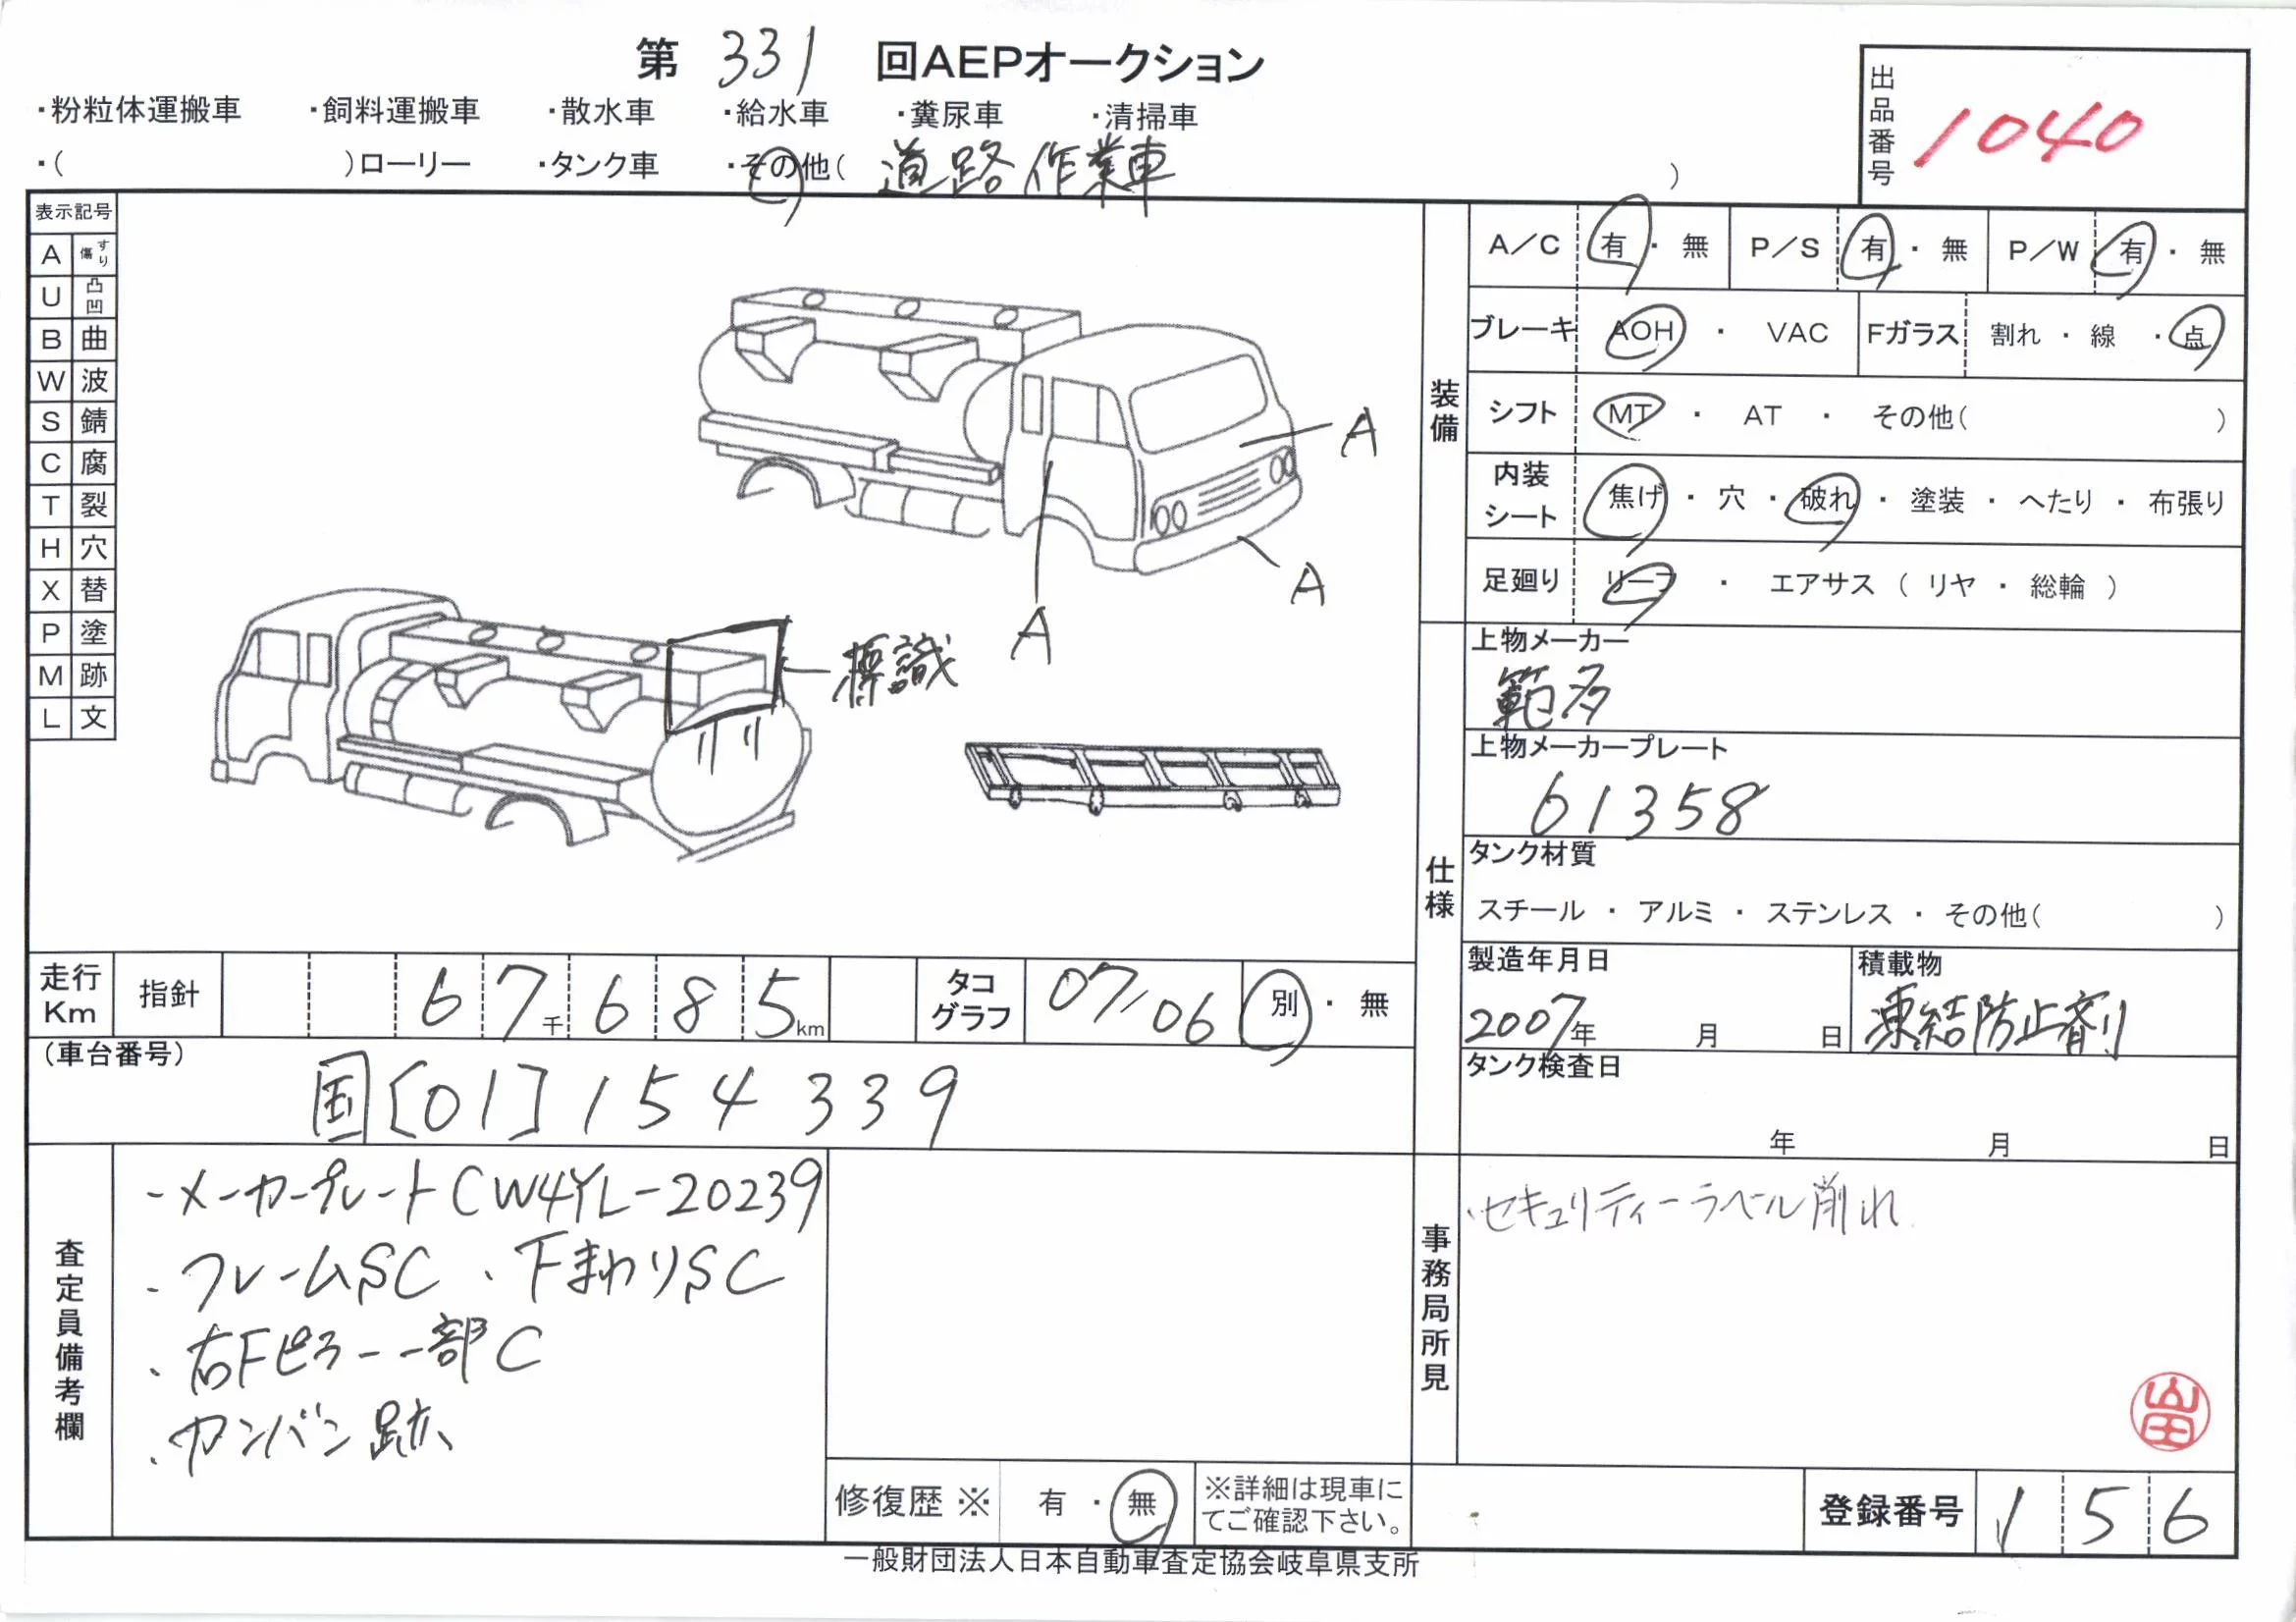 第 331 回AEPオークション
・粉粒体運搬車 ・飼料運搬車 ・散水車 ・給水車 ・糞尿車 ・清掃車
・( )ローリー ・タンク車 ・その他( 道路作業車 )
出品番号 1040
表示記号
A すり傷
U 凸凹
B 曲
W 波
S 錆
C 腐
T 裂
H 穴
X 替
P 塗
M 跡
L 文
A
A
A
標識
装備
A/C 有・無 P/S 有・無 P/W 有・無
ブレーキ AOH ・ VAC Fガラス 割れ ・ 線 ・ 点
シフト MT ・ AT ・ その他( )
内装シート 焦げ ・ 穴 ・ 破れ ・ 塗装 ・ へたり ・ 布張り
足廻り リーフ ・ エアサス ( リヤ ・ 総輪 )
仕様
上物メーカー
範多
上物メーカープレート
61358
タンク材質
スチール ・ アルミ ・ ステンレス ・ その他( )
製造年月日
2007年 月 日
積載物
凍結防止剤
タンク検査日
年 月 日
走行Km 指針 67千685km タコグラフ 07/06 別・無
(車台番号)
国[01]154339
査定員備考欄
-メーカープレートCW4YL-20239
・フレームSC、下まわりSC
・右Fピラー一部C
・カンバン跡
修復歴 ※ 有 ・ 無 ※詳細は現車にてご確認下さい。
事務局所見
・セキュリティーラベル削れ
登録番号 156
一般財団法人日本自動車査定協会岐阜県支所